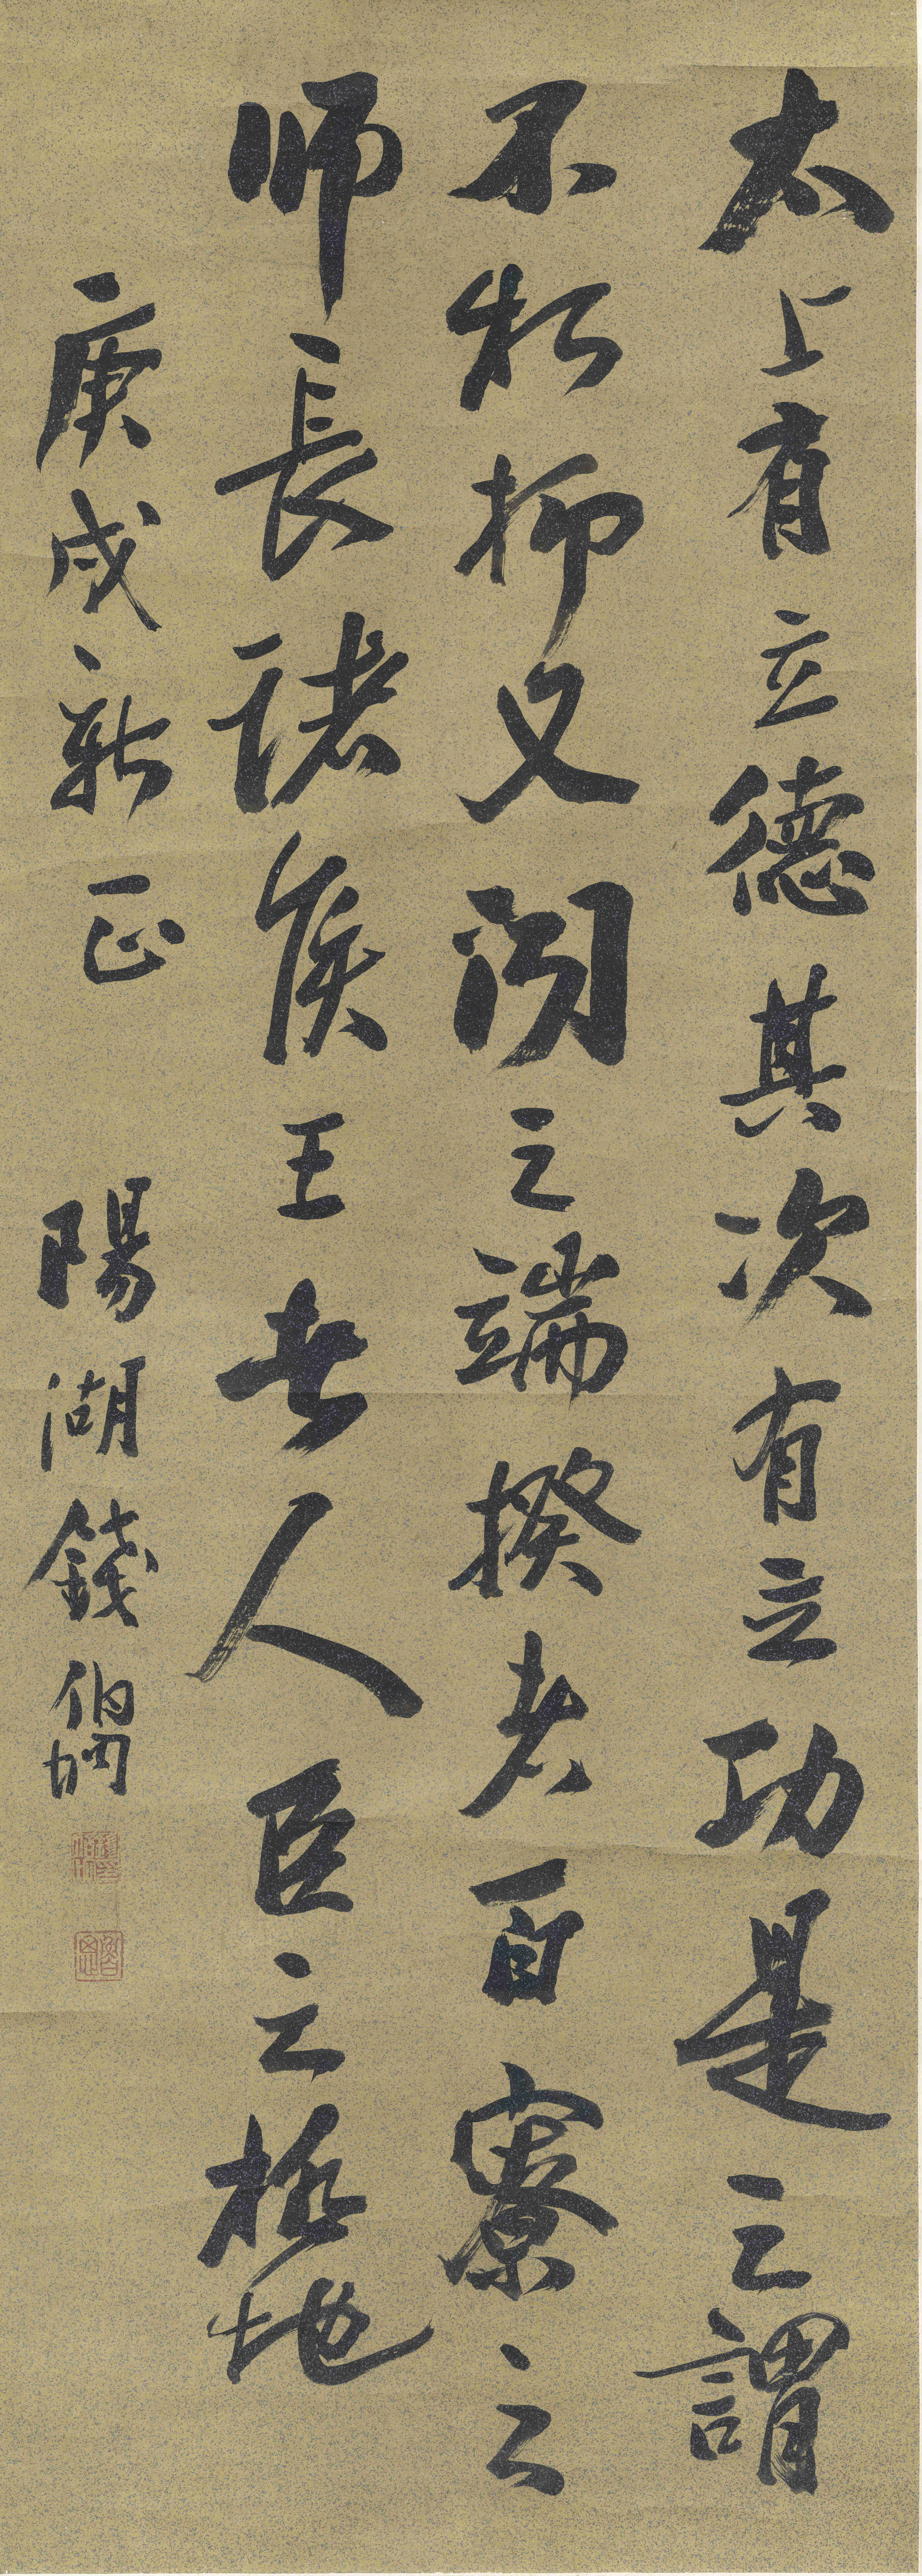 太上有立德其次有立功是之謂
不朽抑又聞之端揆者百寮之
師長諸侯王者人臣之極地
庚戌新正 陽湖錢伯坰
魯思